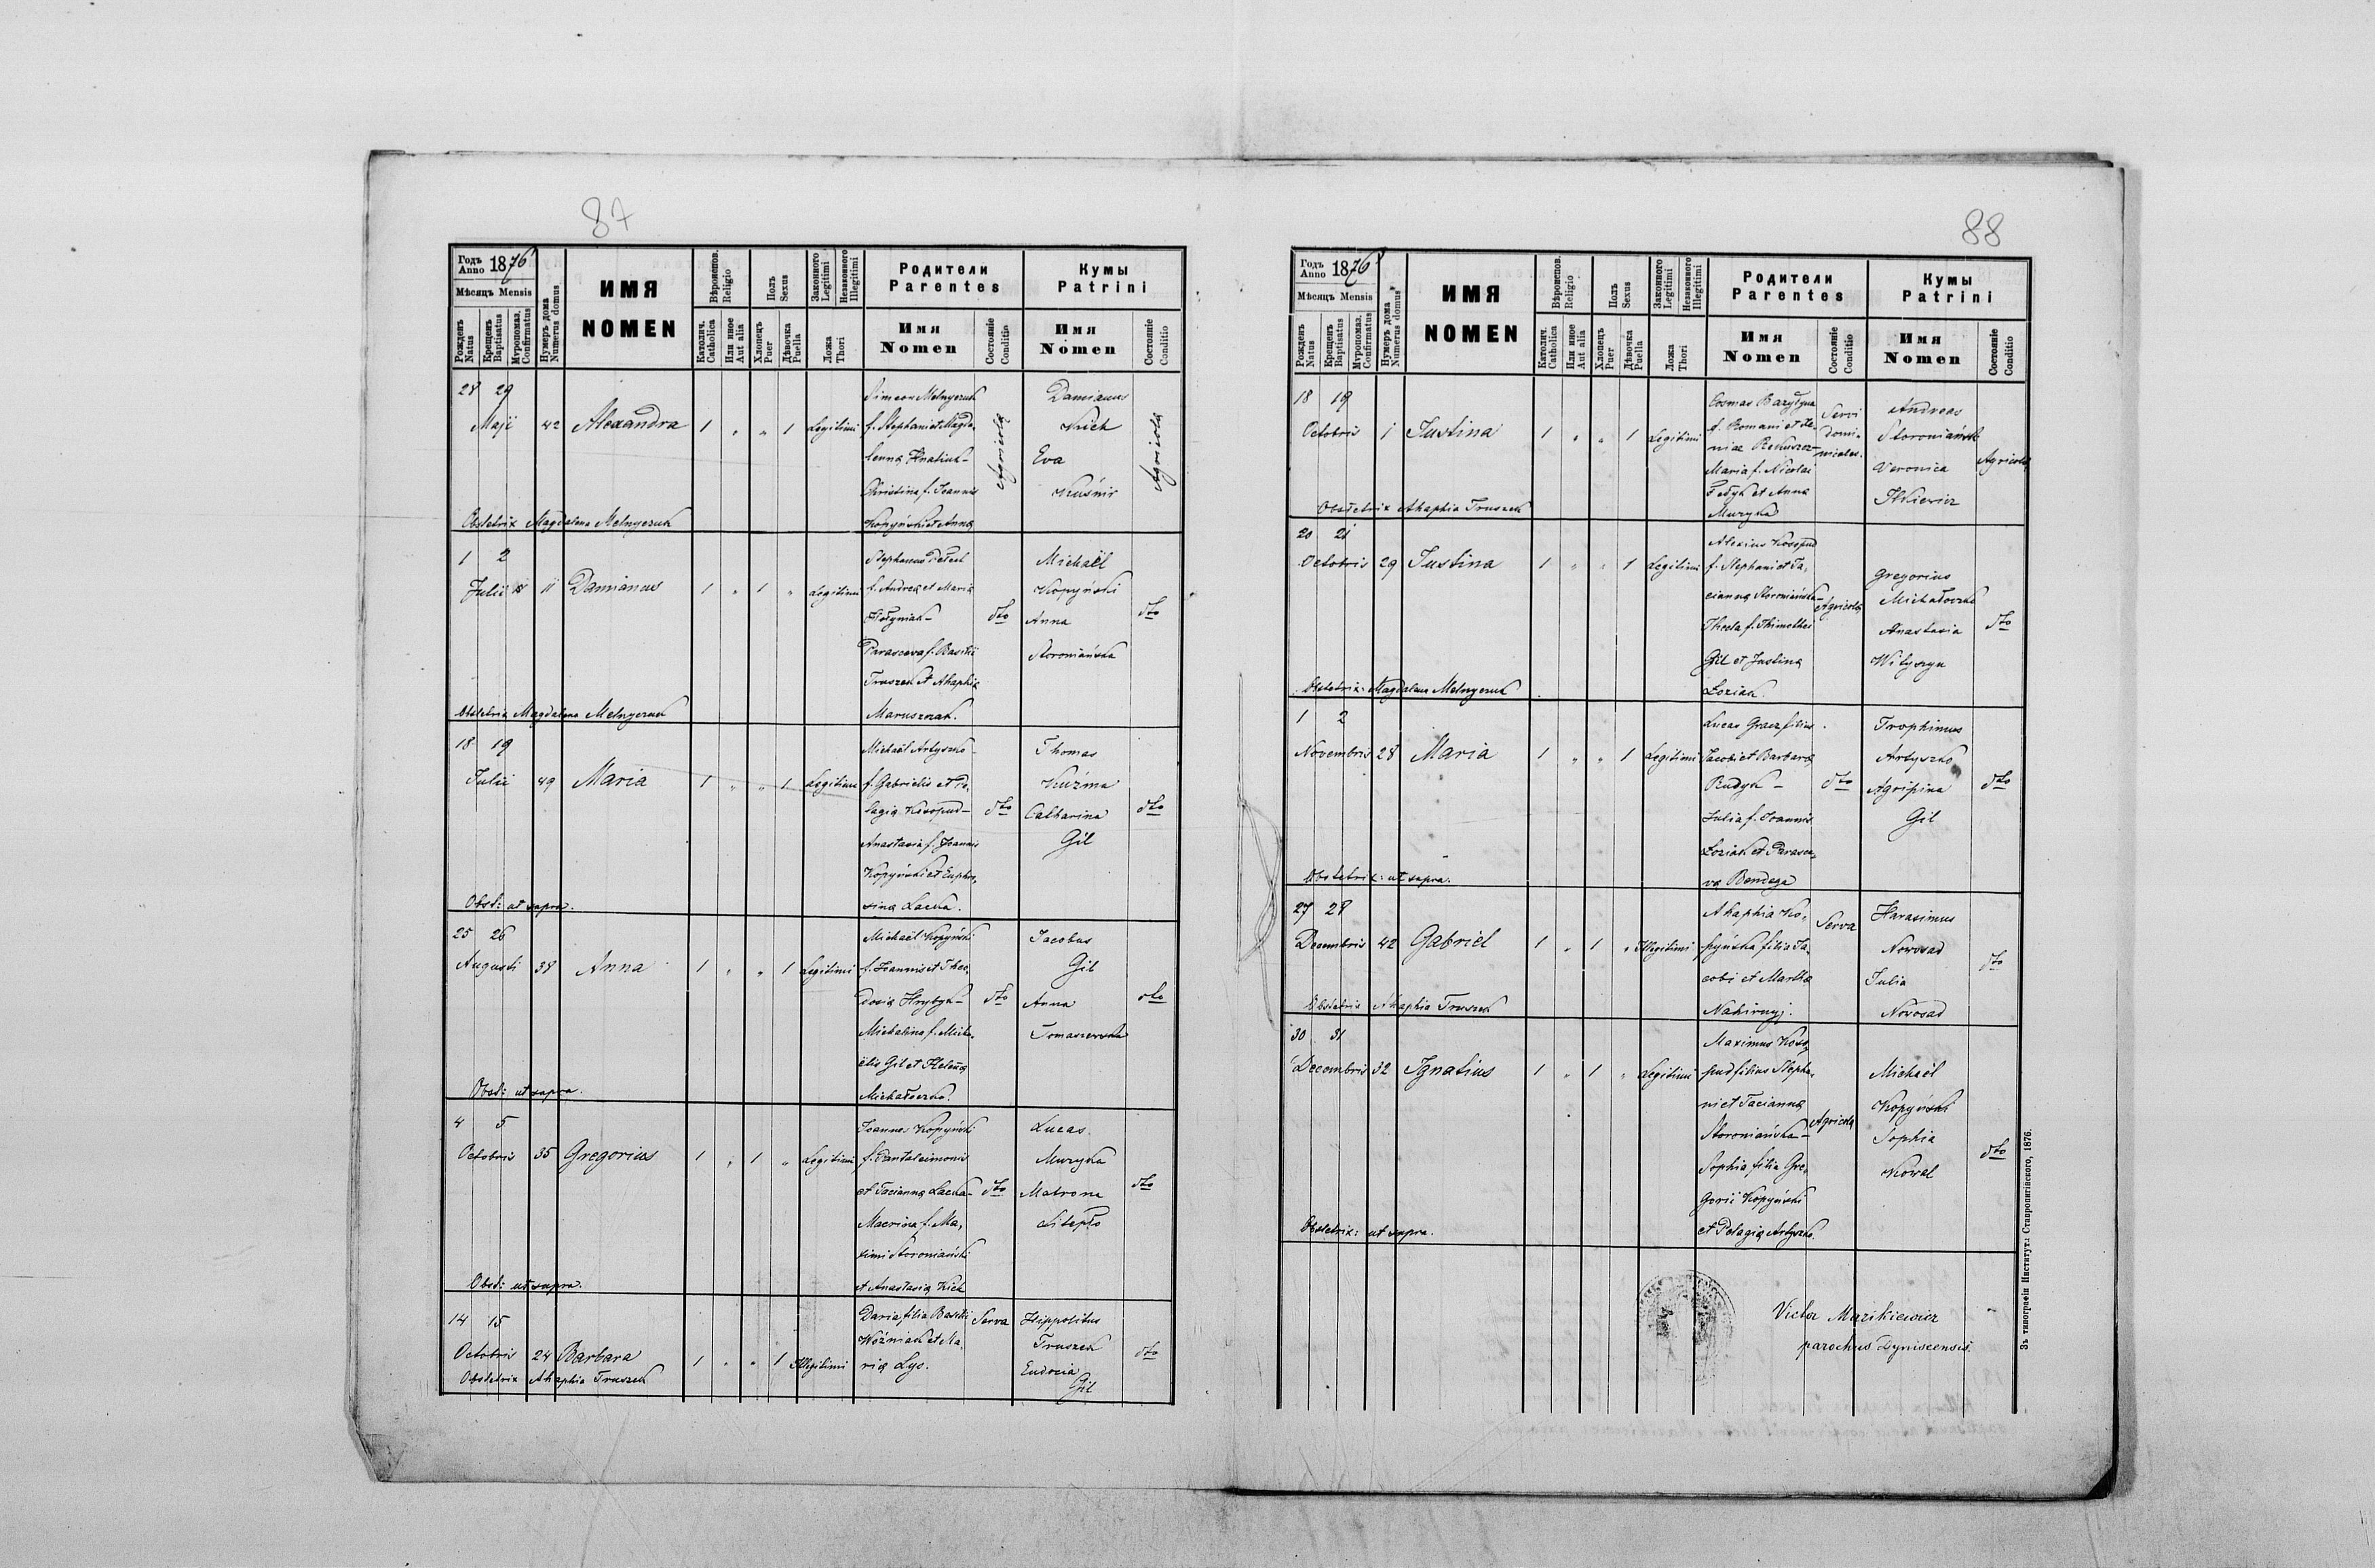 87
Годъ Anno 1876
Мѣсяцъ Mensis
Рожденъ Natus
Крещенъ Baptisatus
Мѵропомаз. Confirmatus
Нумеръ дома Numerus domus
ИМЯ
NOMEN
Вѣроиспов. Religio
Католич. Catholica
Или иное Aut alia
Полъ Sexus
Хлопецъ Puer
Дѣвочка Puella
Законного Legitimi
Незаконного Illegitimi
Ложа Thori
Родители Parentes
Имя Nomen
Состояніе Conditio
Кумы Patrini
Имя Nomen
Состояніе Conditio
28 29
Maji 42 Alexandra 1 " " 1 Legitimi
Simeon Melnyczuk
f. Stephani et Magda-
lenna Hnatiuk -
Christina f. Joannis
Kopyński et Anna
Agricola
Damianus
Kich
Eva
Kuśnir
Agricola
Obstetrix Magdalena Melnyczuk
1 2
Julii 11 Damianus 1 " 1 " Legitimi
Stephanus
f. Andrea et Maria
Hołyniak -
Parasceva f. Basilii
Truszek et Ahaphia
Marusznak.
dto
Michaël
Kopyński
Anna
Storoniańska
dto
Obstetrix Magdalena Melnyczuk
18 19
Julii 49 Maria 1 " " 1 Legitimi
Michaël Artyszko -
f. Gabrielis et Pe-
lagia Kosopud -
Anastasia f. Joannis
Kopyński et Euphro-
sina Lacka.
dto
Thomas
Kuźma
Catharina
Gil
dto
Obst: ut supra.
25 26
Augusti 38 Anna 1 " " 1 Legitimi
Michaël Kopyński
f. Joannis et Theo-
dosia Hrybyk -
Michalina f. Micha-
ëlis Gil et Helena
Michałoczko.
dto
Jacobus
Gil
Anna
Tomaszewska
dto
Obst: ut supra.
4 5
Octobris 35 Gregorius 1 " 1 " Legitimi
Joannes Kopyński
f. Pantaleimonis
et Tacianna Lacka -
Macrina f. Ma-
ximi Storoniański
et Anastasia Kich
dto
Lucas
Muzyka
Matrona
Litepło
dto
Obst: ut supra.
14 15
Octobris 24 Barbara 1 " " 1 Illegitimi
Daria filia Basilii
Woźniak et Ma-
ria Lys.
Serva
Hippolitus
Truszek
Eudocia
Gil
dto
Obstetrix Ahaphia Truszek
88
Годъ Anno 1876
Мѣсяцъ Mensis
Рожденъ Natus
Крещенъ Baptisatus
Мѵропомаз. Confirmatus
Нумеръ дома Numerus domus
ИМЯ
NOMEN
Вѣроиспов. Religio
Католич. Catholica
Или иное Aut alia
Полъ Sexus
Хлопецъ Puer
Дѣвочка Puella
Законного Legitimi
Незаконного Illegitimi
Ложа Thori
Родители Parentes
Имя Nomen
Состояніе Conditio
Кумы Patrini
Имя Nomen
Состояніе Conditio
18 19
Octobris 1 Justina 1 " " 1 Legitimi
Cosmas Bazyłyna
f. Romani et Xe-
niae
Maria f. Nicolai
Fedyk et Anna
Muzyka
Servi
domi-
nicales.
Andreas
Storoniański
Veronica
Ilkiewicz
Agricola
Obstetrix Ahaphia Truszek
20 21
Octobris 29 Justina 1 " " 1 Legitimi
Alexius Kosopud
f. Stephani et Ta-
cianna Storoniańska -
Thecla f. Thimothei
Gil et Justina
Loziak.
Agricola
Gregorius
Michałoczko
Anastasia
Wityszyn
dto
Obstetrix: Magdalena Melnyczuk
1 2
Novembris 28 Maria 1 " " 1 Legitimi
Lucas Gracz filius
Jacobi et Barbara
Rudyk -
Julia f. Joannis
Loziak et Parasce-
va Bendega
dto
Trophimus
Artyszko
Agripina
Gil
dto
Obstetrix: ut supra.
27 28
Decembris 42 Gabriel 1 " 1 " Illegitimi
Ahaphia Ko-
pyńska filia Ja-
cobi et Martha
Nahirnyj.
Serva
Harasimus
Novosad
Julia
Novosad
dto
Obstetrix Ahaphia Truszek
30 31
Decembris 32 Ignatius 1 " 1 " Legitimi
Maximus Koso-
pud filius Stepha-
ni et Tacianna
Storoniańska -
Sophia filia Gre-
gorii Kopyński
et Pelagia Artyszko.
Agricola
Michaël
Kopyński
Sophia
Kowal
dto
Obstetrix: ut supra.
Victor Mazikiewicz
parochus Dyniscensis.
Зъ типографіи Институт: Ставропигійского, 1876.